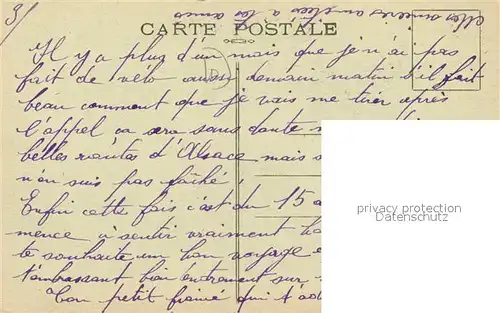 3/
CARTE POSTALE
Il y a plus d'un mois que je n'ai pas
fait de vélo aussi demain matin s'il fait
beau comment que je vais me tirer après
l'appel ca sera sans doute
belles routes d'Alsace mais
n'en suis pas fâché.
Enfin cette fois c'est du 15
mence à sentir vraiment
te souhaite un bon voyage e
t'embrassant bien entrement sur
Ton petit fiancé qui t'ado
privacy protection
Datenschutz